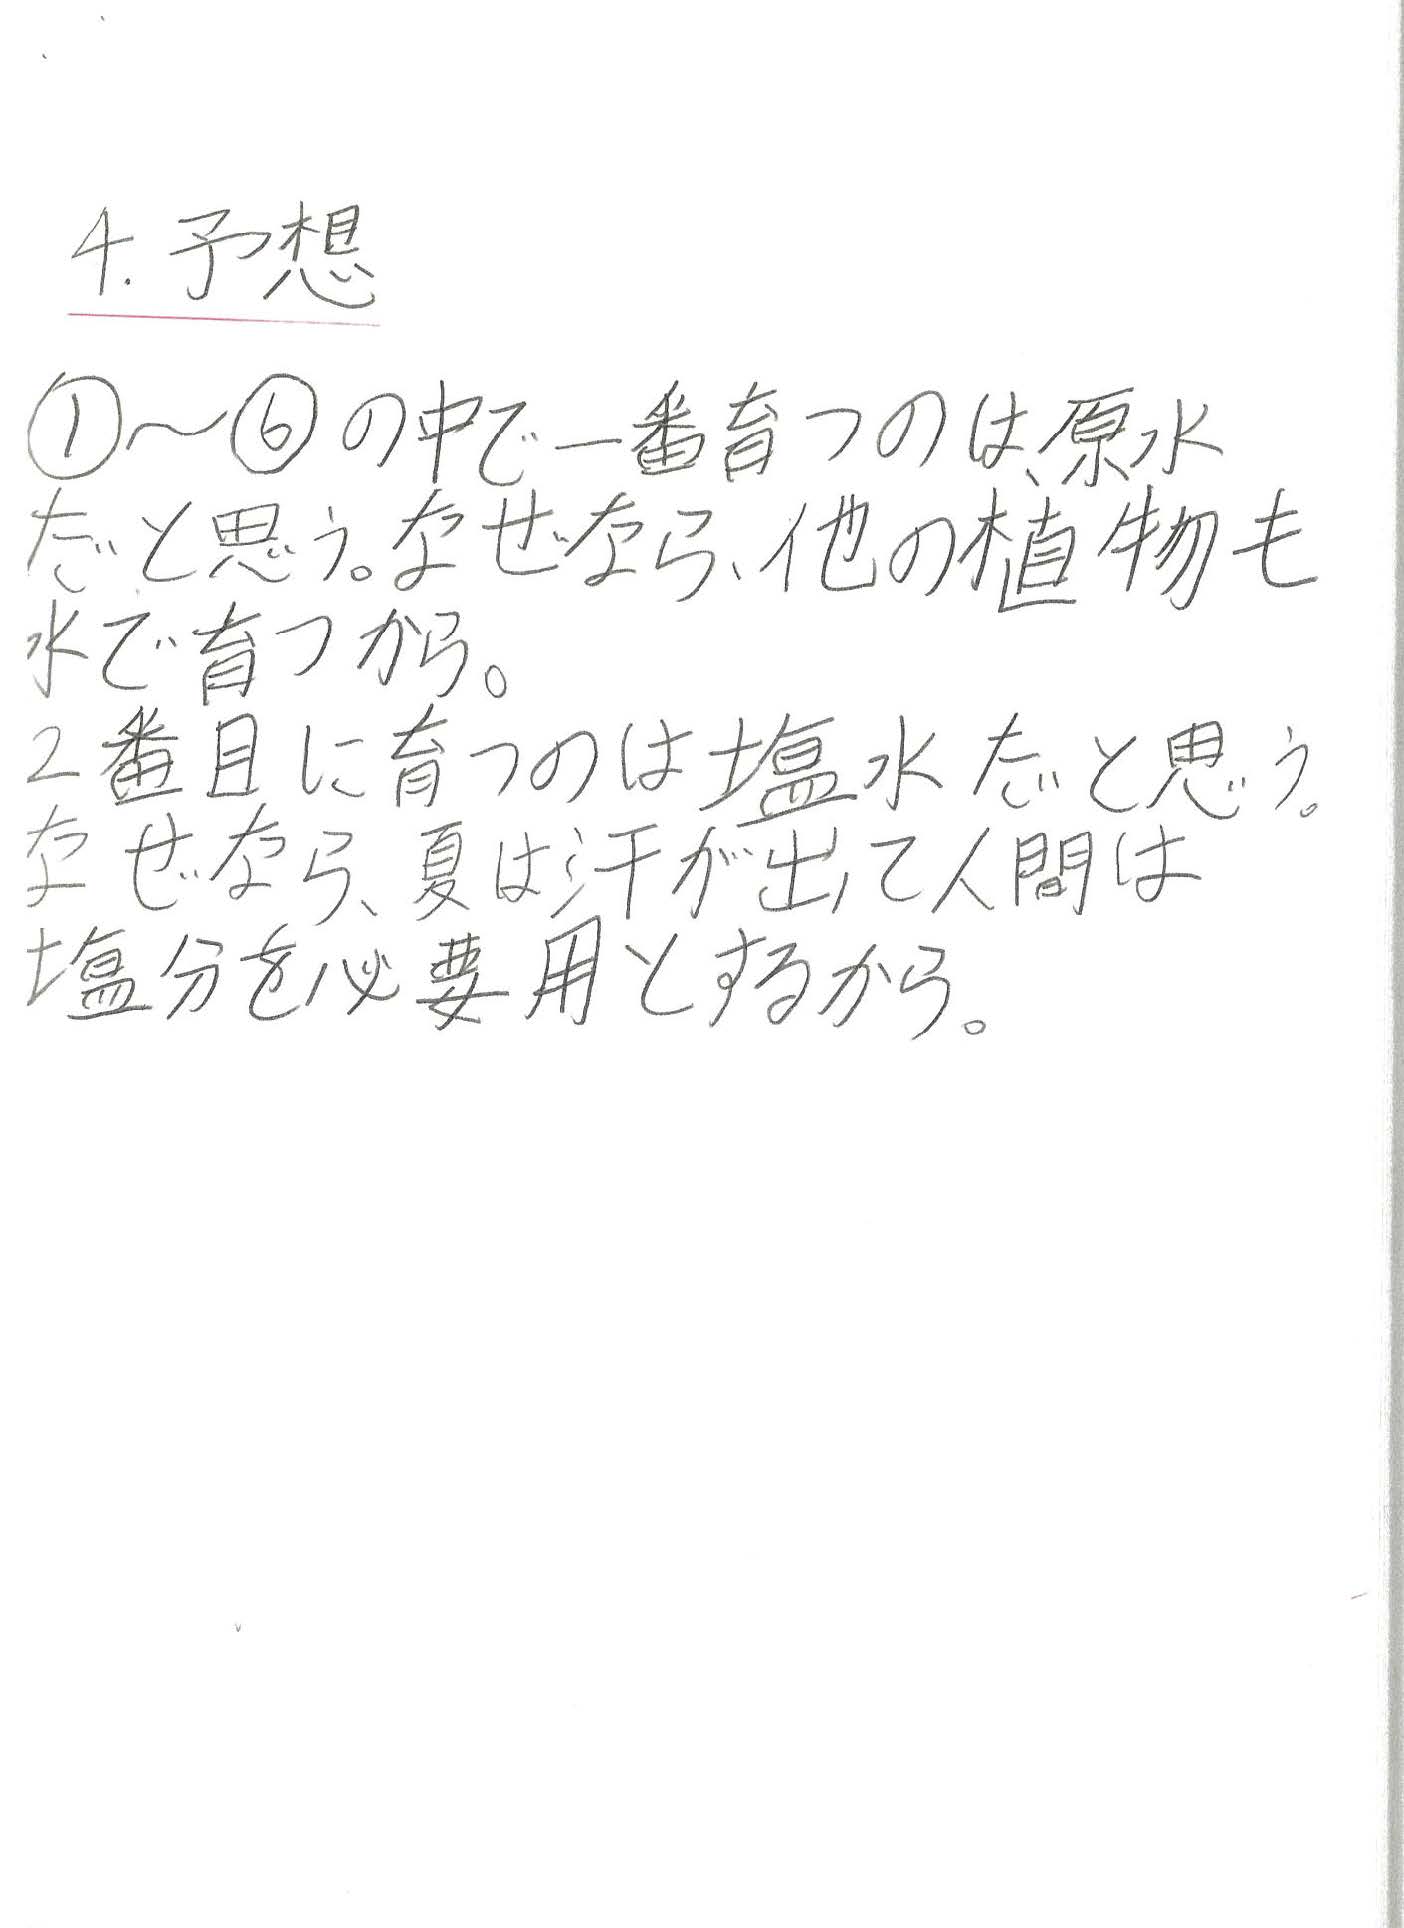 4.予想
①～⑥の中で一番育つのは、原水
だと思う。なぜなら、他の植物も
水で育つから。
2番目に育つのは塩水だと思う。
なぜなら、夏は汗が出て人間は
塩分を必要用とするから。